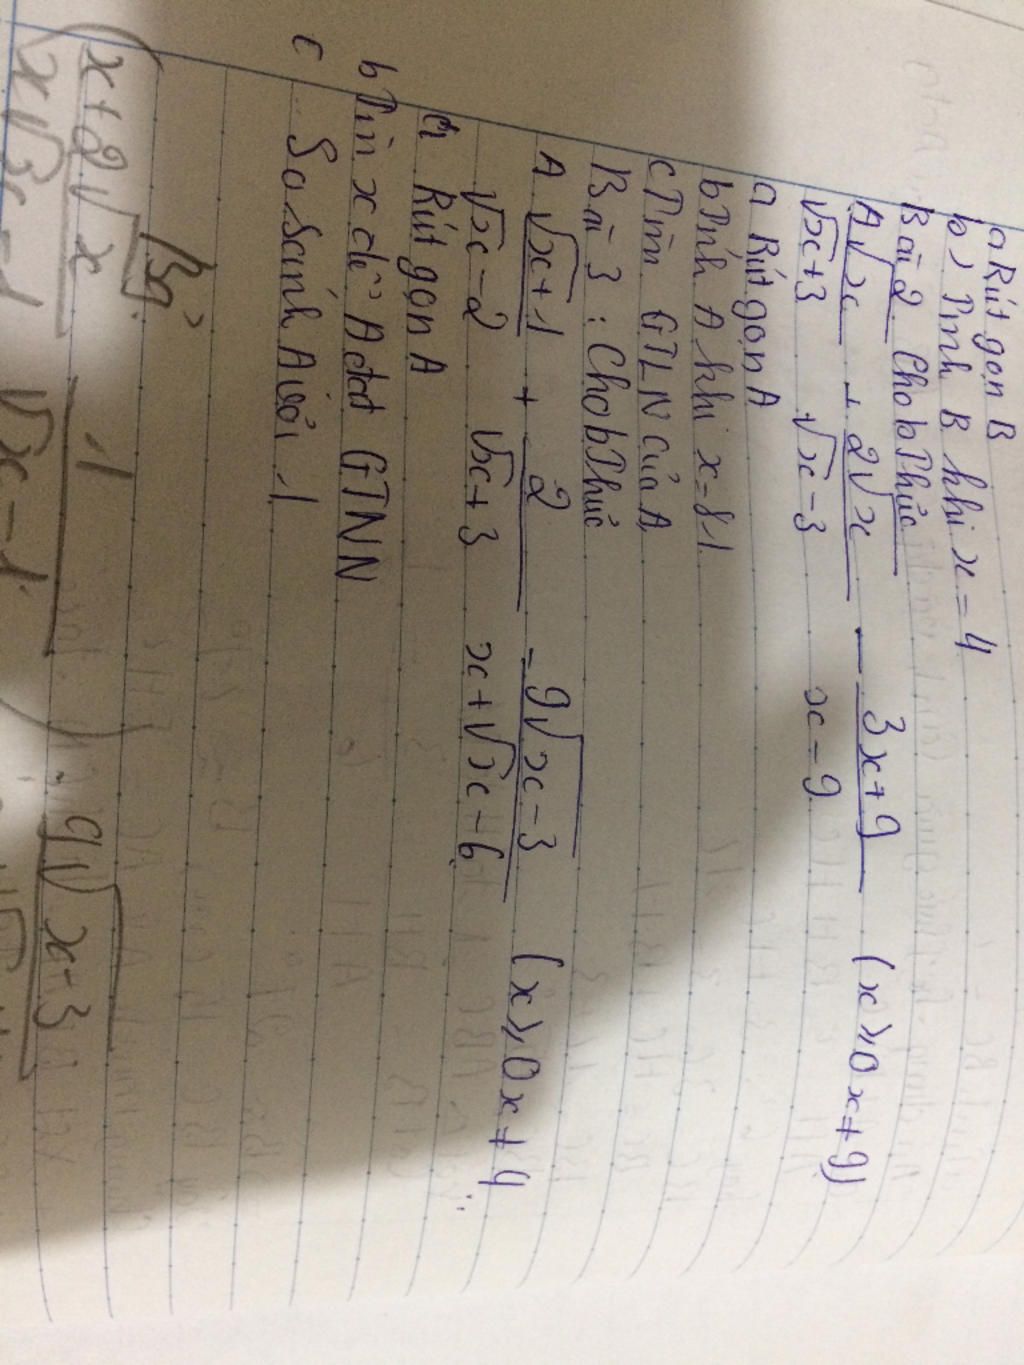 a Rút gọn B
b) Tính B khi x = 4
Bài 2 Cho bthức
A √x / √x+3 + 2√x / √x-3 - 3x+9 / x-9 (x ≥ 0 x ≠ 9)
a Rút gọn A
b Tính A khi x = 81
c Tìm GTLN của A
Bài 3 : Cho bthức
A √x+1 / √x-2 + 2 / √x+3 - 9√x-3 / x+√x-6 (x ≥ 0 x ≠ 4
a Rút gọn A
b Tìm x để A đạt GTNN
c So sánh A với 1
x+2√x / x√x-1 1 / √x-1